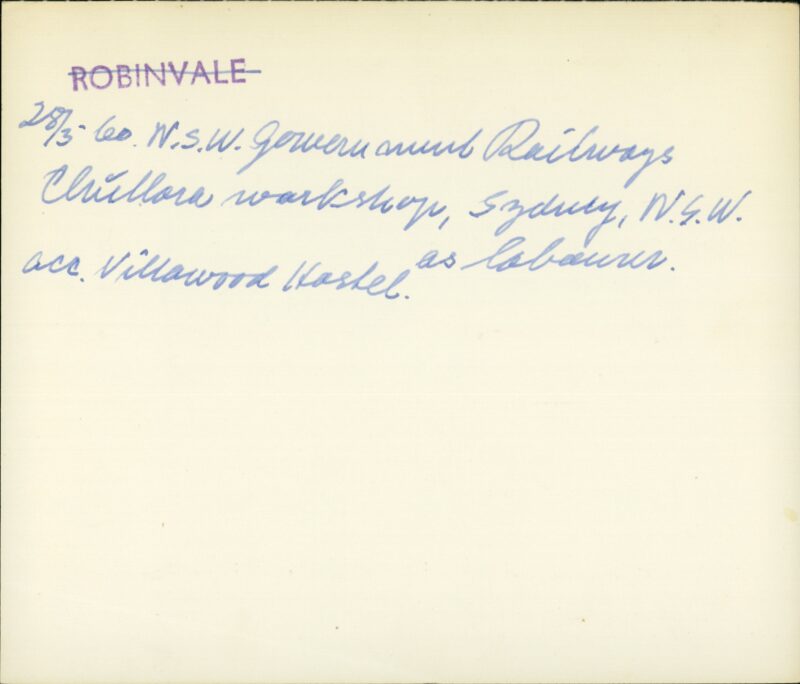 ROBINVALE
28/5 60. N.S.W. Government Railways
Chullora workshop, Sydney, N.S.W.
acc. Villawood Hostel. as labourer.